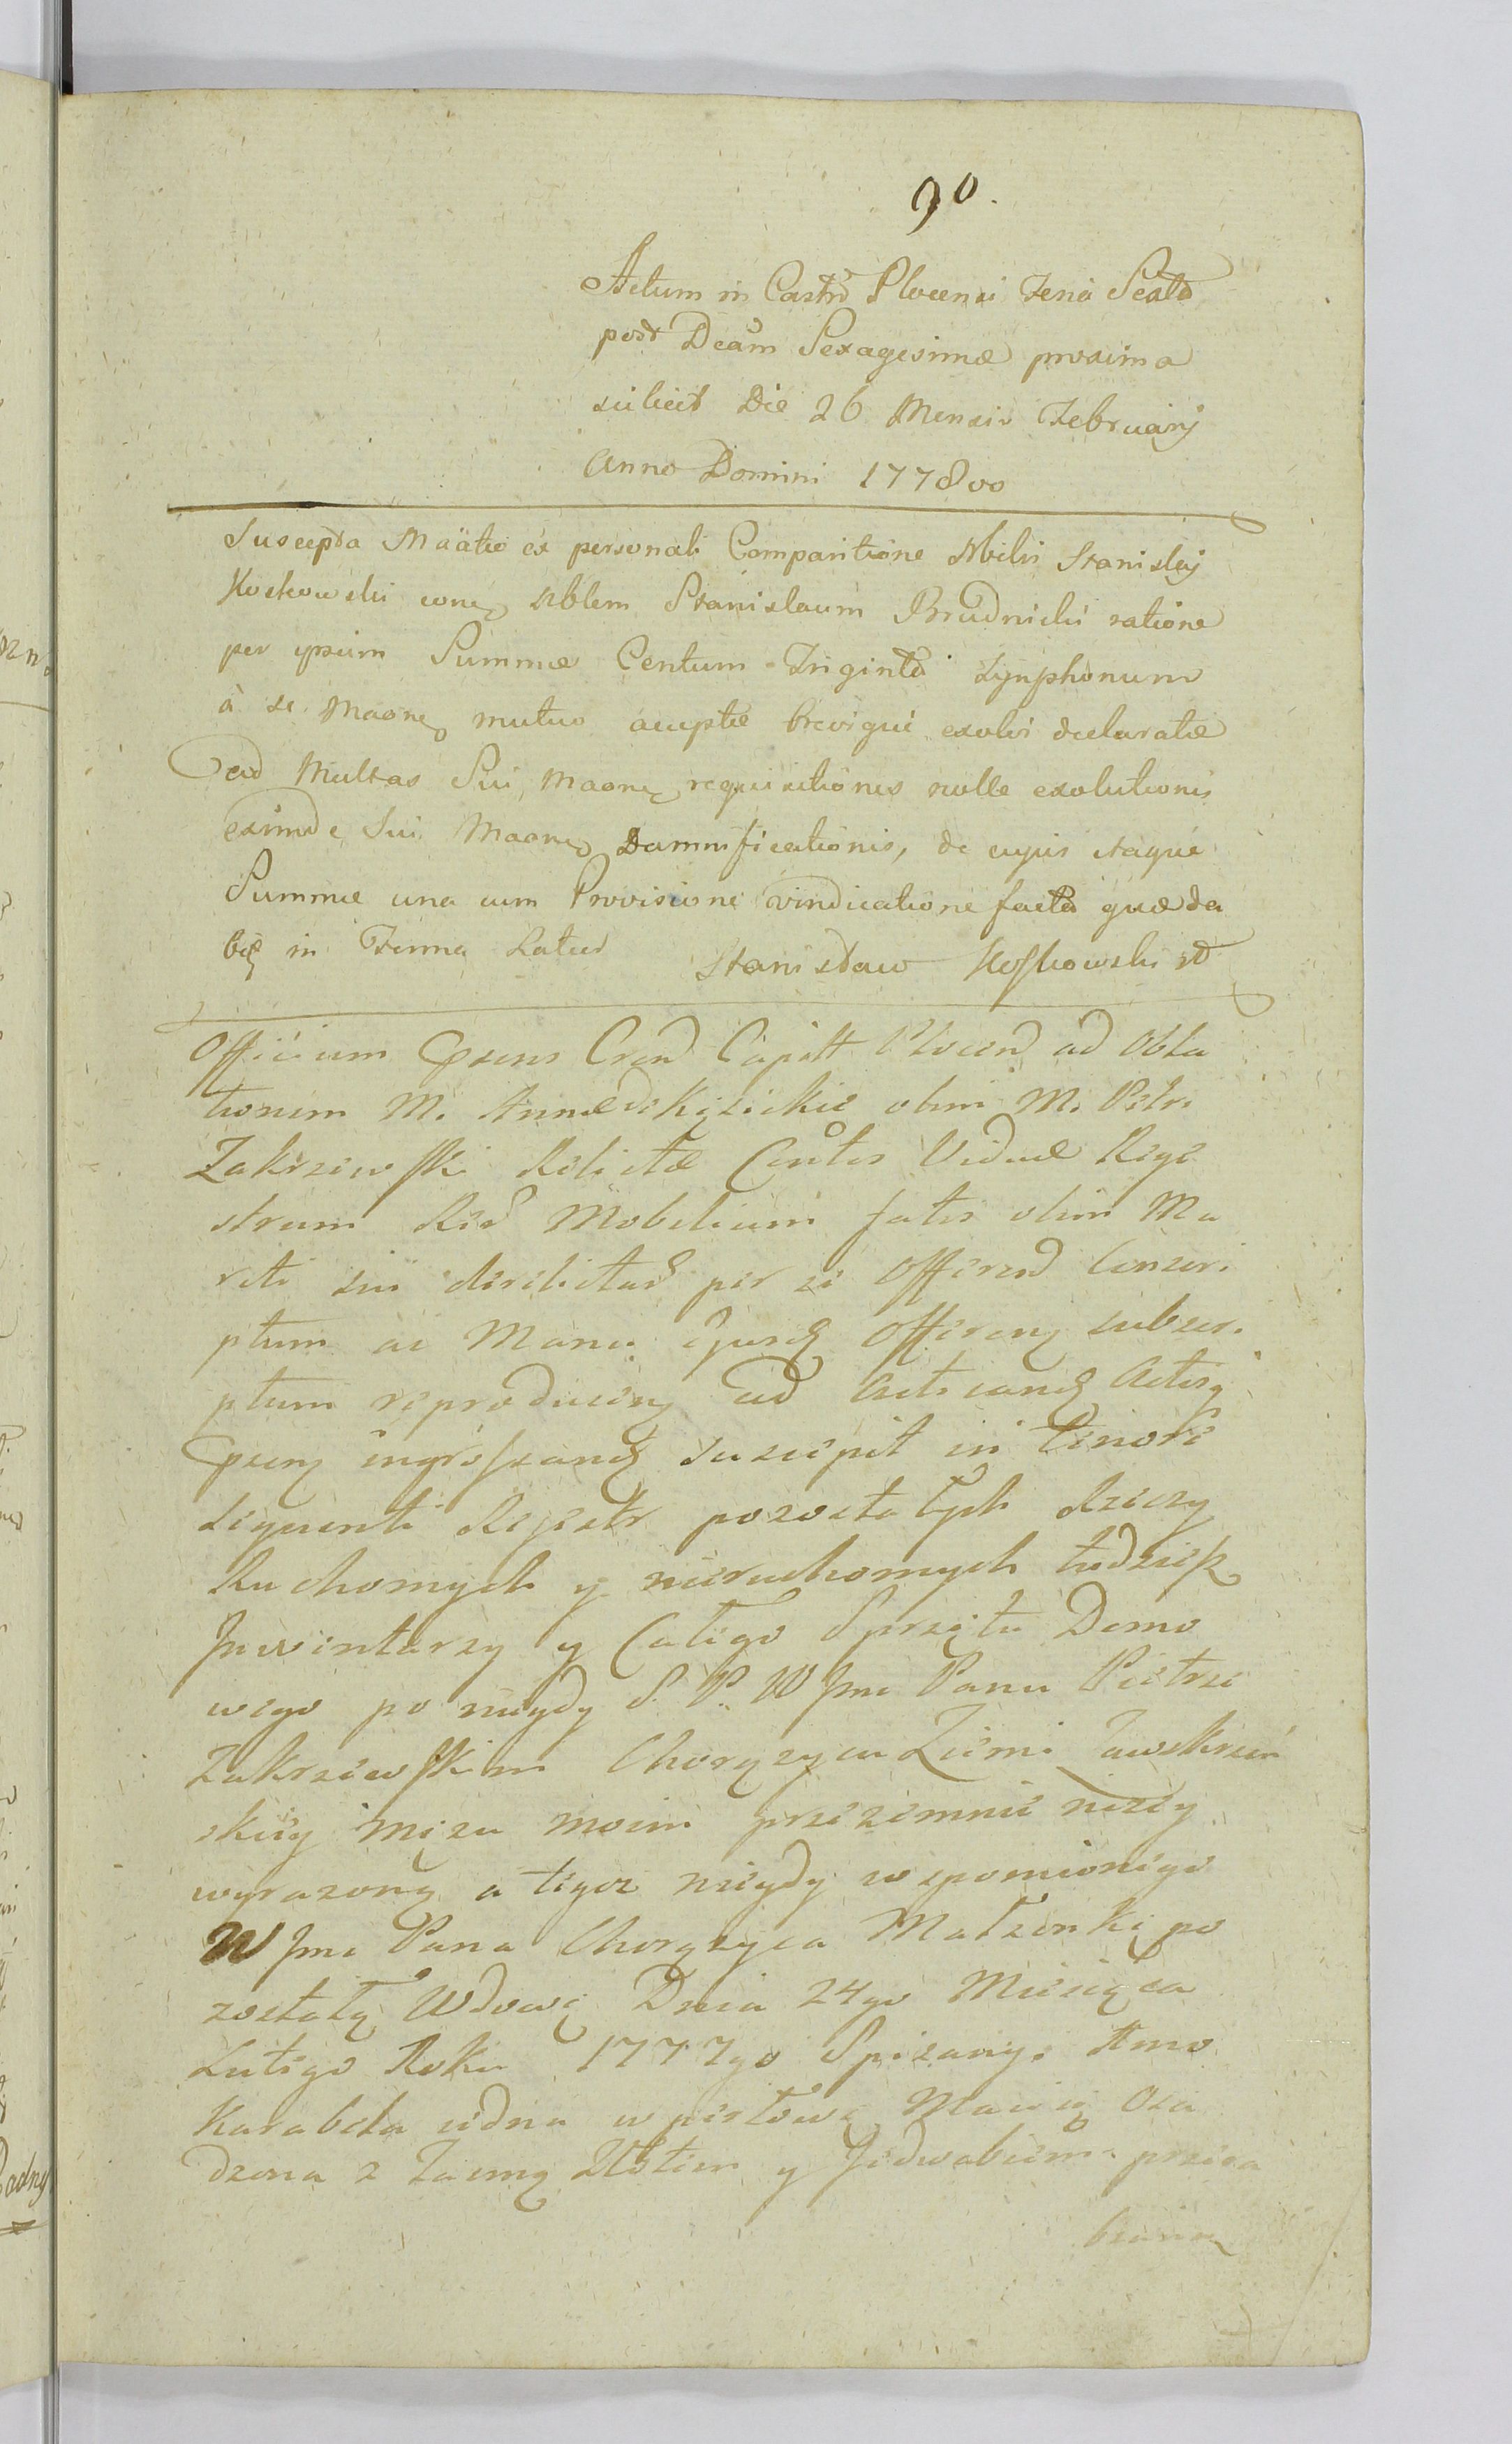 90.
Actum in Castro Plocensi Feria Sexta
post Dcam Sexagesimæ proxima
scilicet Die 26 Mensis Februarij
Anno Domini 1778vo
Suscepta Maatio ex personali Comparitione Nbilis Stanislai
Koskowski conq Nblem Stanislaum Brudnicki ratione
per ipsum Summæ Centum Triginta Tynphonum
à se Maone mutuo acceptæ brevique exolvi declaratæ
ad Multas Sui Maonis requisitiones nolle exolutionis
exinde Sui Maonis Damnificationis, de cujus itaque
Summæ una cum Provisione vindicatione facta quæ da
biq in Termo Latius Stanisław Koskowski st
Officium Gpræns Cvend Capitt Plocen ad Obla
tionem M. Annæ de Kiżickie olim M. Petri
Zakrzewski Relictæ Cnltis Viduæ Rege
strum Reĩ Mobilium fatis olim Ma
riti sui derelictar per se Offerend Conscri
ptum ac Manu Ejusd Offeren subscri
ptum reproducen ad Acticand Actisq
Gpræn ingrossand suscepit in tenore
sequenti Rejestr pozostałych Rzeczy
Ruchomych y nieruchomych tudziesz
Inwintarzy y Całego Sprzętu Domo
wego po niegdy S. P. W Jmc Panu Pietrze
Zakrzewskim Chorązycu Ziemi Zawskrzeń
skiey Mężu moim przezemnie niżey
wyrazoną a tegoz niegdy wspomionego
W Jmc Pana Chorązyca Małzonkę po
zostałą Wdowę Dnia 24go Miesiąca
Lutego Roku 1777go Spisany. Amo
Karabela iedna w perłową Macicę Osa
dzona z Taśmą Złotem y Jedwabiem przera
bianą